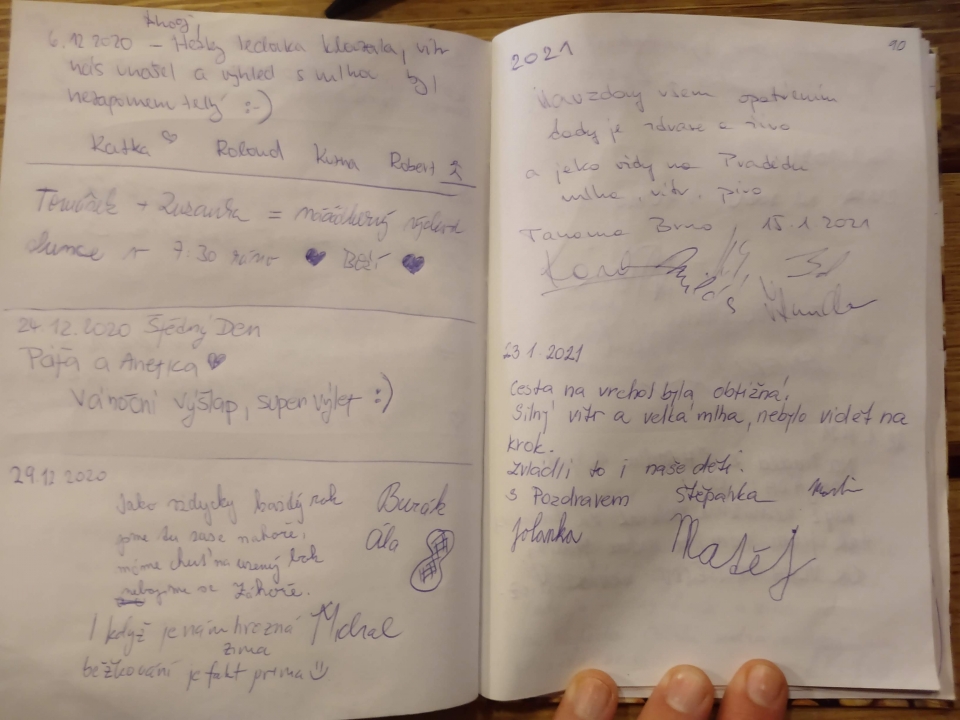 Ahoj,
6.12 2020 – Hezky ledovka klouzala, vítr
nás unášel a výhled s mlhou byl
nezapomentelný :-)
Katka Roland Kuma Robert
Tomášek + Zuzanka = východ
slunce v 7:30 ráno Boží
24.12.2020 Štědrý Den
Páťa a Anetka
Vánoční výšlap, super výlet :)
29.12 2020
Jako vzdycky kazdý rok
jsme tu zase nahoře,
máme chuť na uzený bok
nebojíme se Zihoře.
Burák
Ála
I když je nám hrozná
zima
běžkování je fakt prima
Michal
2021
10
Navzdory všem opatřením
tady je zdravo a živo
a jako vždy na Pradědu
mlha, vítr, pivo
Brno 15.1 2021
23 1. 2021
Cesta na vrchol byla obtížná!
Silný vítr a velká mlha, nebylo vidět na
krok.
Zvládli to i naše děti.
s Pozdravem Štěpánka Martin
Jolanka
Matěj